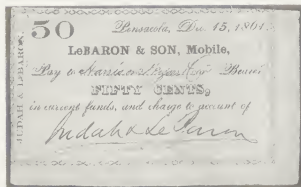 50
Pensacola, Dec. 15, 1861.
LeBARON & SON, Mobile,
Pay to or Bearer
FIFTY CENTS,
in current funds, and charge to account of
Judah & LeBaron
JUDAH & LEBARON.